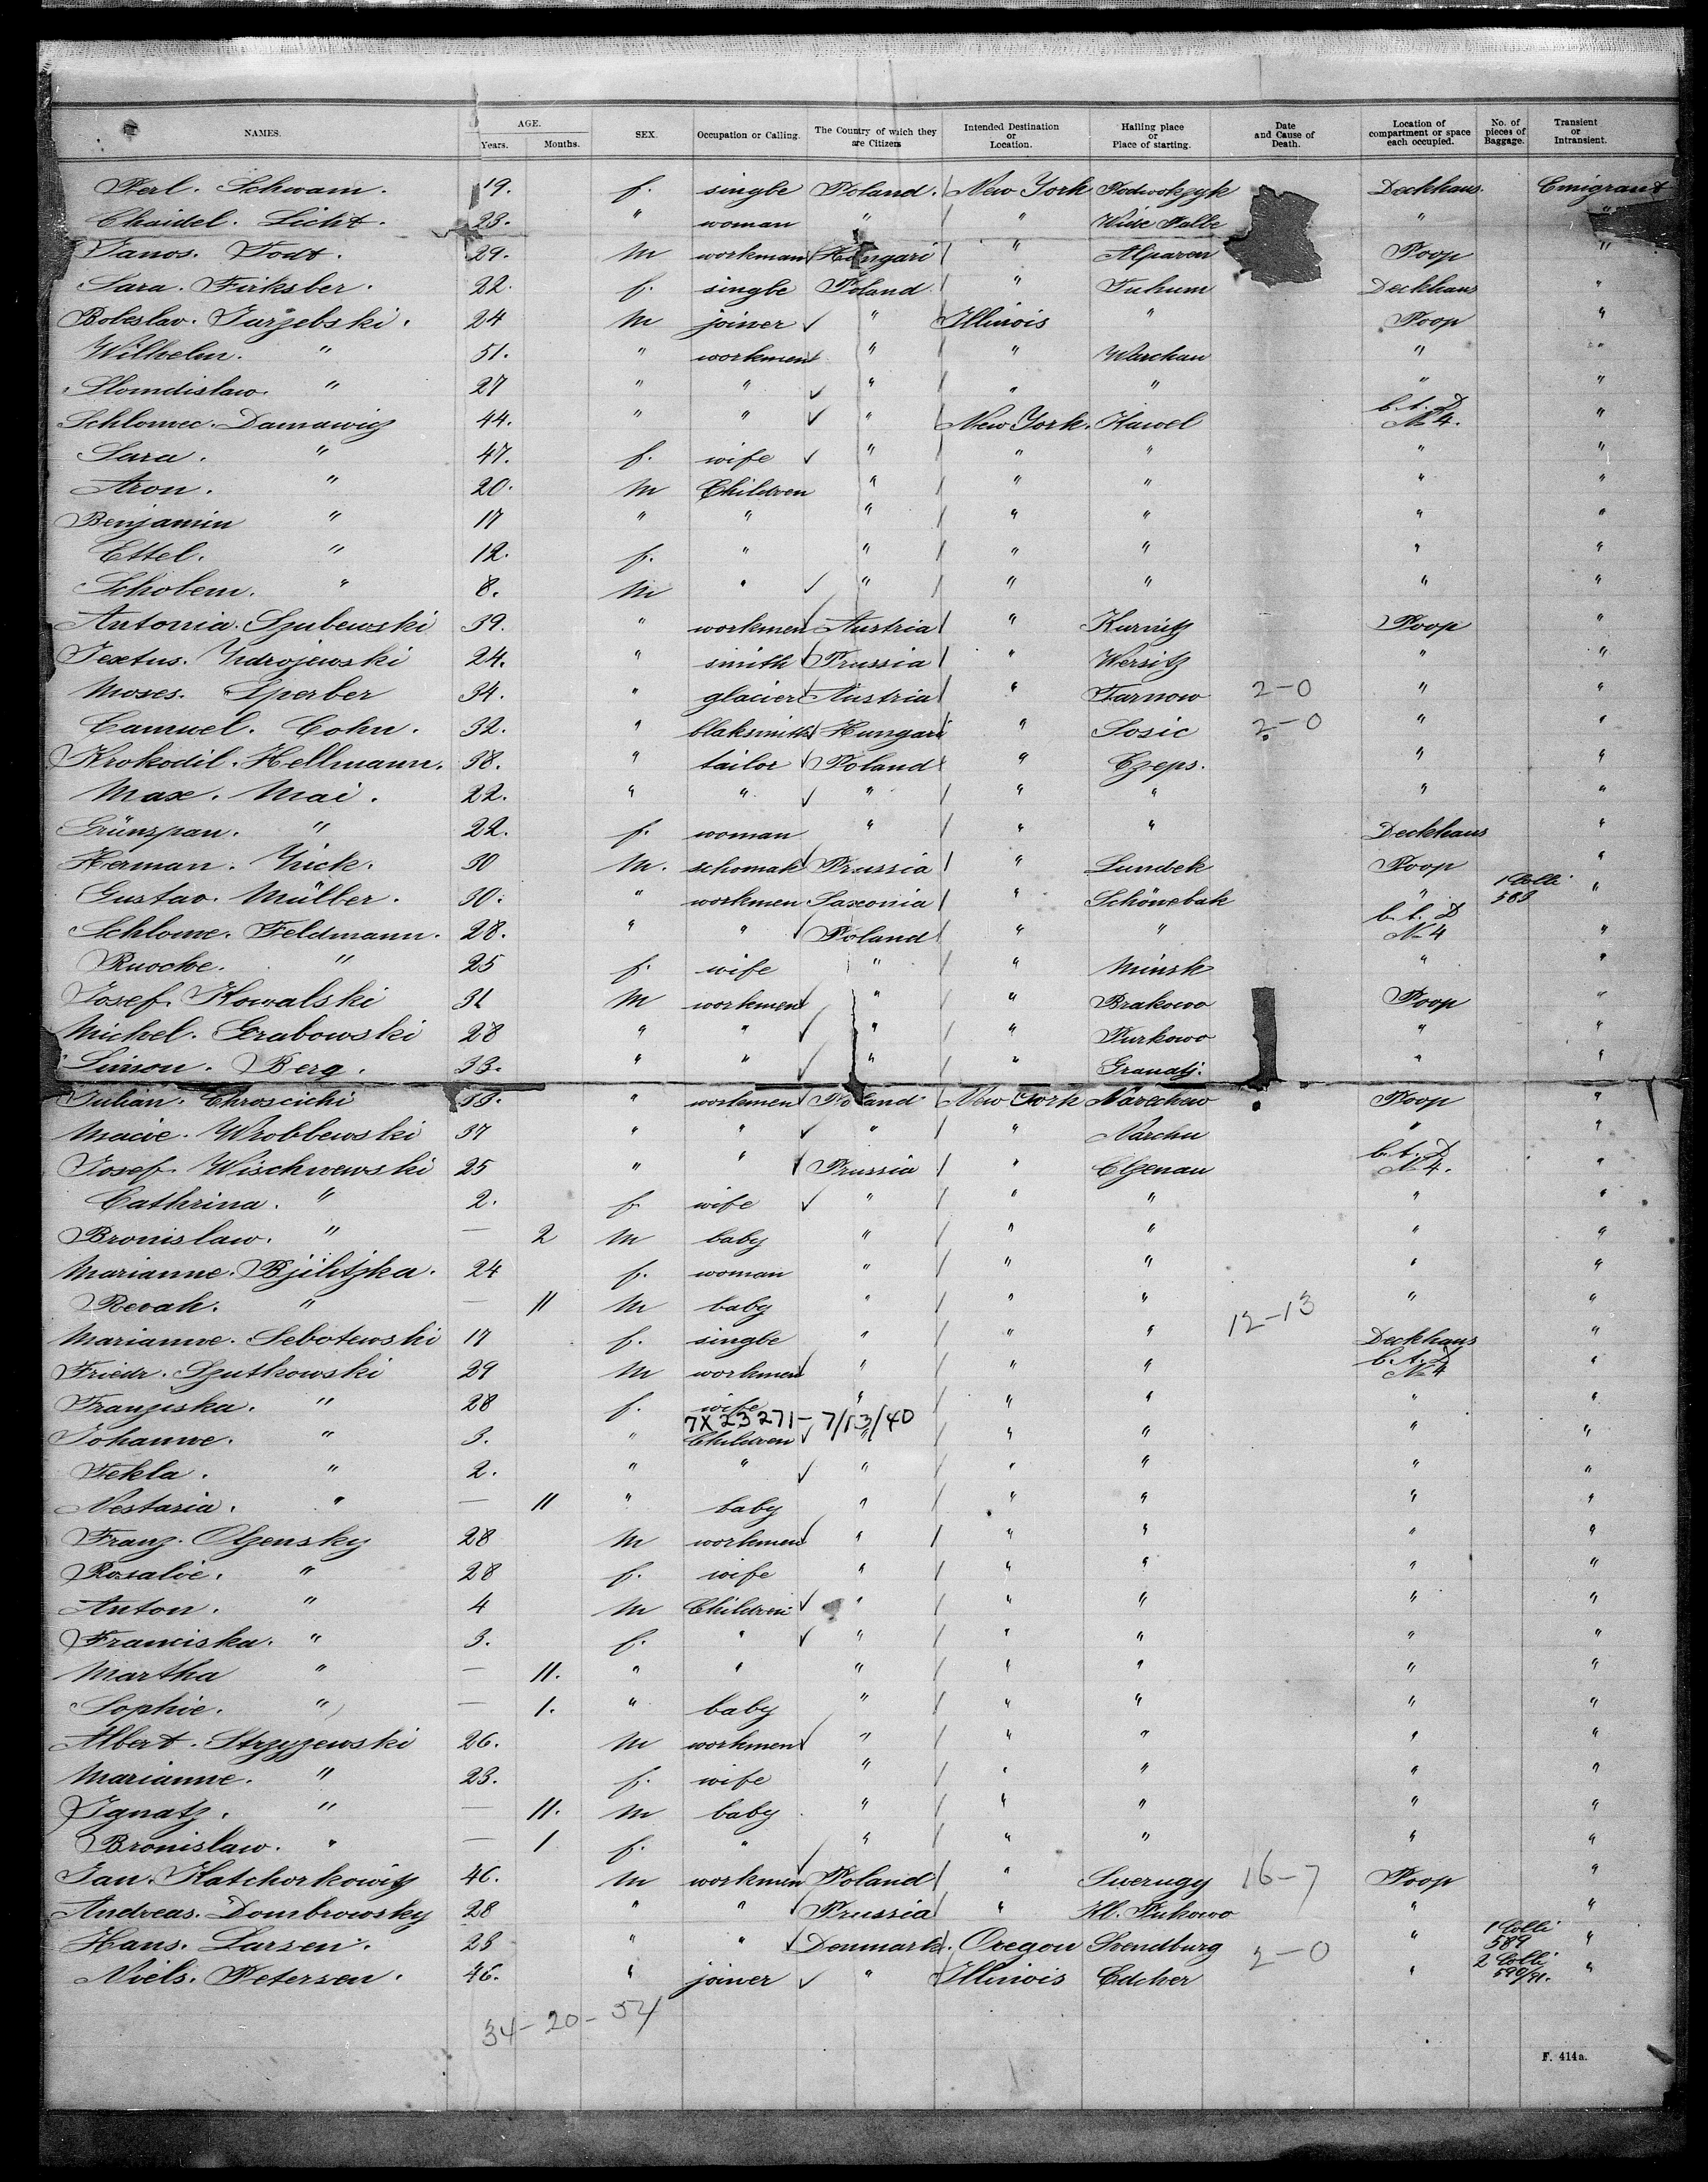 NAMES. AGE. Years. Months. SEX. Occupation or Calling. The Country of which they are Citizens Intended Destination or Location. Hailing place or Place of starting. Date and Cause of Death. Location of compartment or space each occupied. No. of pieces of Baggage. Transient or Intransient.
Perl. Schwam. 19. f. single Poland. New York Deckhaus. Emigrant
Chaidel. Licht. 23. " woman " " "
Janos. Todt. 29. M workman Hungari " Poop "
Sara. Firksber. 22. f. single Poland " Tuhum Deckhaus "
Boleslav. Jarzebski. 24 M joiner " Illinois " Poop "
Wilhelm. " 51. " workmen " " Warchau " "
" 27 " " " " " " "
Schlomec. Damawig 44. " " " New York. Kawel b. t. D No 4. "
Sara. " 47. f. wife " " " " "
Aron. " 20. M Children " " " " "
Benjamin " 17 " " " " " " "
Ettel. " 12. f. " " " " " "
Schobem. " 8. M " " " " " "
Antonia. Szubewski 39. " workmen Austria " Kurnitz Poop "
24. " smith Prussia " Wersitz " "
Moses. Sperber 34. " glacier Austria " Tarnow 2-0 " "
Camuel. Cohn. 32. " blaksmith Hungari " Sosic 2-0 " "
Krokodil. Hellmann. 38. " tailor Poland " Czeps. " "
Max. Mai. 22. " " " " " " "
Grünspan. " 22. f. woman " " " Deckhaus "
Herman. 30 M. schomak Prussia " Lundek Poop "
Gustav. Müller. 30. " workmen Saxonia " Schönebak " 1 Colli 583 "
Schlome. Feldmann. 28. " " Poland " " b. t. D No 4 "
Ruoche. " 25 f. wife " " Minsk " "
Josef. Kowalski 31 M workmen " " Brakowo Poop "
Michel. Grabowski 28 " " " " Purkowo " "
Simon. Berg. 33. " " " " " "
Julian. Chroscichi 33. " workmen Poland New York Poop "
Macie. Wrobbewski 37 " " " " Narchu " "
Josef. Wischnewski 25 " " Prussia " Elzenau b. t. D No 4. "
Cathrina. " 2. f. wife " " " " "
Bronislaw. " — 2 M baby " " " " "
Marianne. Bjilitzka. 24 f. woman " " " " "
Revah. " — 11 M baby " " " 12-13 " "
Marianne. Sebotewski 17 f. single " " " Deckhaus "
Friedr. Szutkowski 29 M workmen " " " b. t. D No 4 "
Franziska. " 28 f. wife " " " " "
7X23271- 7/13/40
Johanne. " 3. " Children " " " " "
Tekla. " 2. " " " " " " "
Nestaria. " — 11 " baby " " " " "
Franz. Olzensky 28 M workmen " " " " "
Rosalie. " 28 f. wife " " " " "
Anton. " 4 M Children " " " " "
Franciska. " 3. f. " " " " " "
Martha " — 11. " " " " " " "
Sophie. " — 1. " baby " " " " "
Albert. Strzyzewski 26. M workmen " " " " "
Marianne. " 23. f. wife " " " " "
Ignatz. " — 11. M baby " " " " "
Bronislaw. " — 1 f. " " " " " "
Jan. Katchorkowitz 46. M workmen Poland " Swerugy 16-7 Poop "
Andreas. Dombrowsky 28 " " Prussia " Kl. Pukowo " "
Hans. Larsen. 23 " " Denmark. Oregon Svendburg 2-0 " 1 Colli 589 "
Niels. Petersen. 46. " joiner " Illinois Edcher " 2 Colli 590/91. "
34-20-54
F. 414a.